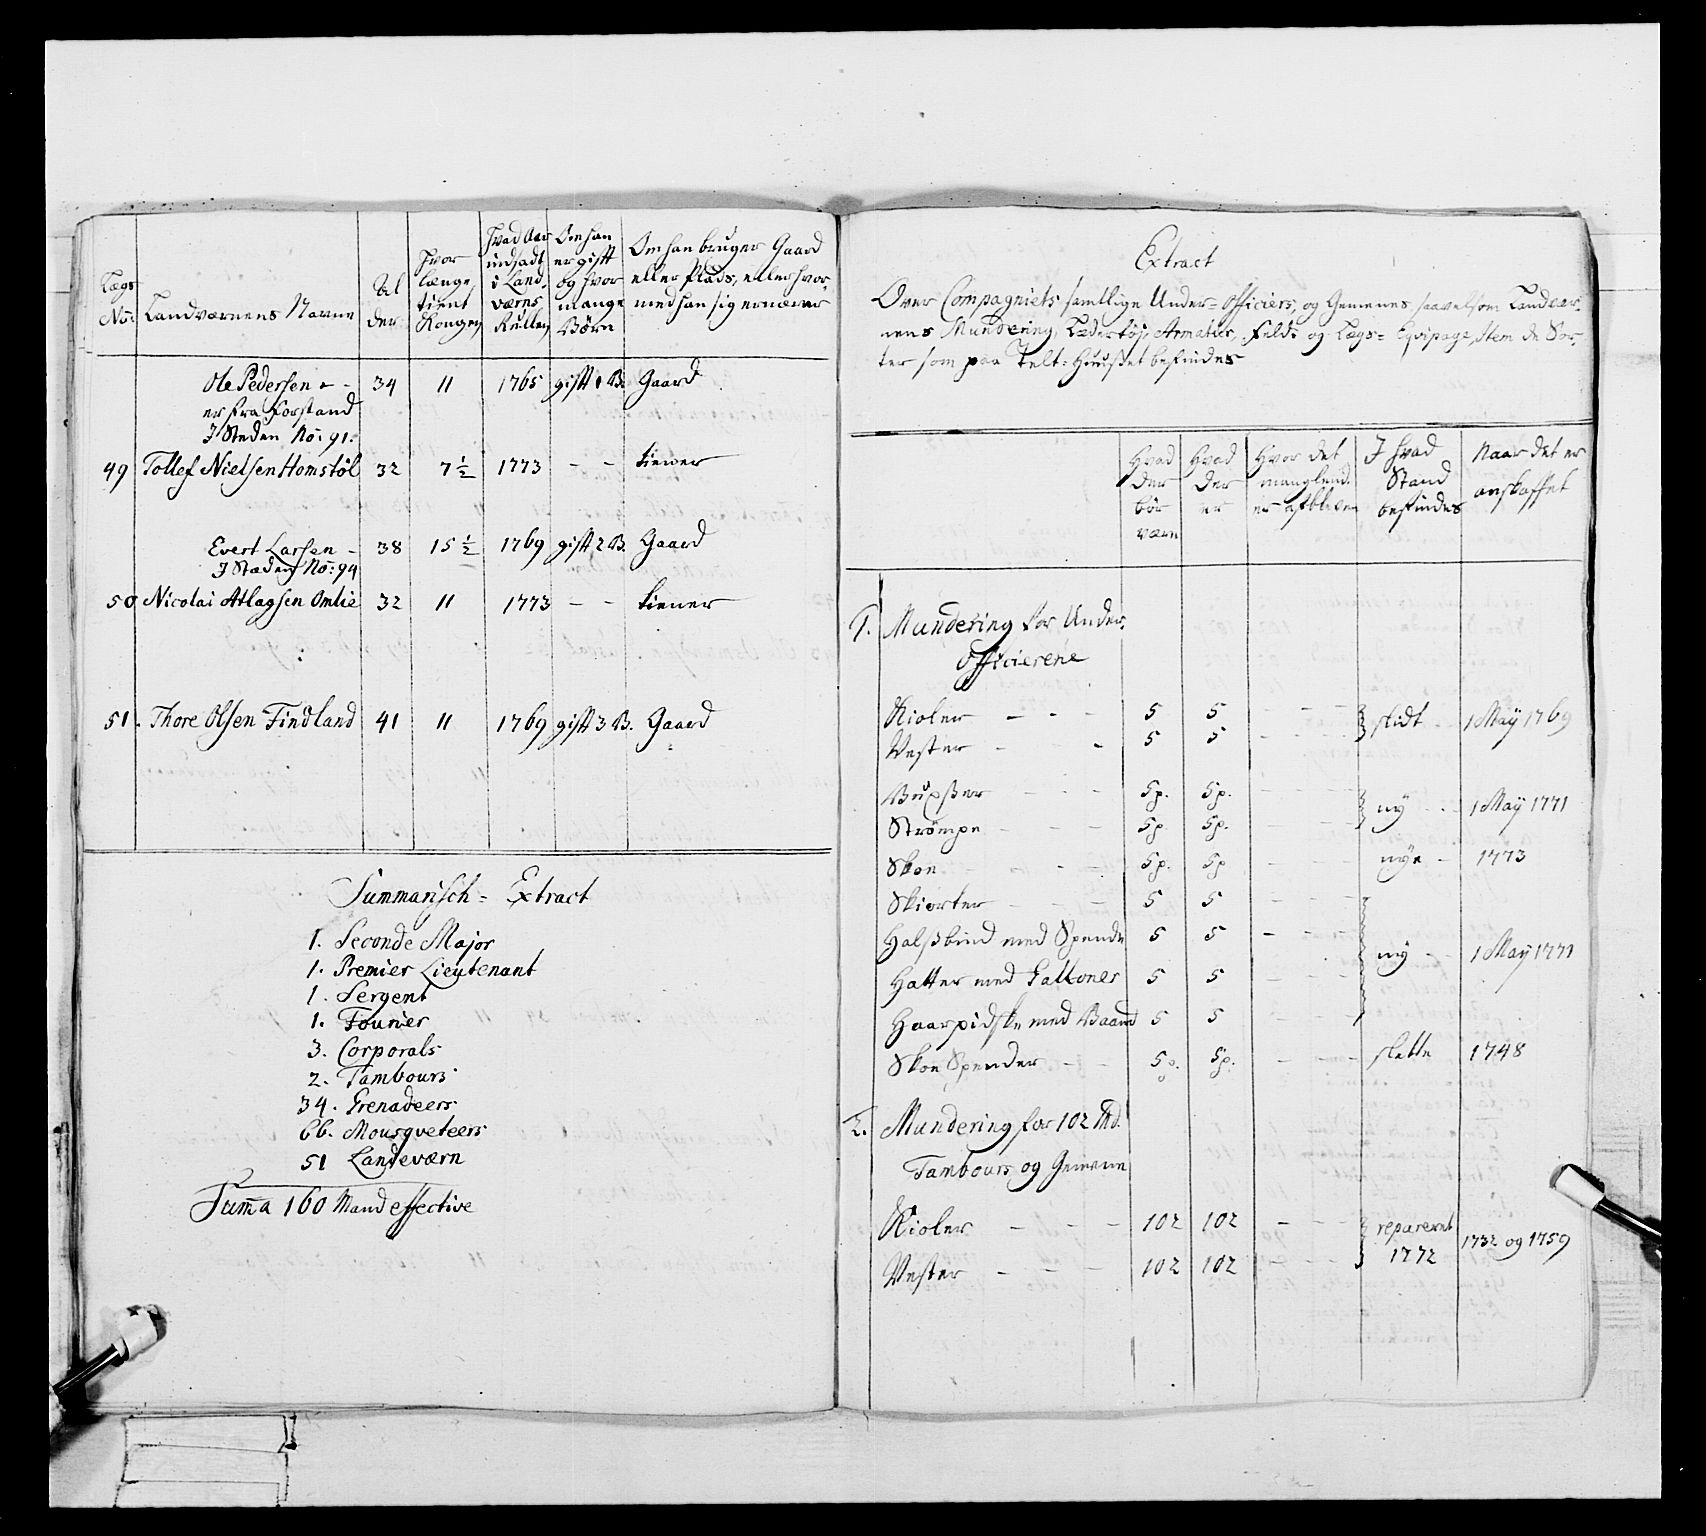 Lægs No:
Landværnens Navne
Al der
Hvor længe tient Kongen
Hvad Aar indsadt i Land værns Rullen
Om han er gift og hvor mange Børn
Om han bruger Gaard eller Plads, eller hvor med han sig ernærer
Ole Pedersen - - 34 11 1765 gift 1 B. Gaard
er fra Forstand
I Steden No: 91.
49 Tollef Nielsen Homstøl 32 7 1/2 1773 - - tiener
Evert Larsen - 38 15 1/2 1769 gift 2 B. Gaard
I Stæden No: 94
50 Nicolai Atlagsen Omlie 32 11 1773 - - tiener
51. Thore Olsen Findland 41 11 1769 gift 3 B. Gaard
Summarisch = Extract
1. Seconde Major
1. Premier Lieutenant
1. Sergent
1. Fourier
3. Corporals
2. Tambours
34. Grenadeers
66. Mousqveteers
51 Landeværn
Suma 160 Mand effective
Extract
Over Compagniets samtlige Under=officiers, og Gemenes saavelsom Landvær-
nens Mundering, Lædertøj, Armatur, Feldt og Lægs= Eqvipage, Item de Sor-
ter som paa Telt=Huuset befindes
Hvad der bör værn
Hvad der er
Hvor det manglend. er afbleven
I hvad Stand befindes
Naar det er anskaffet
1. Mundering for Under
officierene
Kioler - - - 5 5 - - - slidt 1 Maÿ 1769
Vester - - 5 5 - - -
Buxser - - - 5p. 5p. - - ny - - 1 Maÿ 1771
Strømpe - - - 5p 5p. - -
Skoe - - - 5p. 5p - - nye - 1773
Skiorter - - - 5 5 - - -
Halsbind med Spende 5 5 - - - ny - - 1 Maÿ 1771
Hatter med Galloner 5 5 - - -
Haarpidske med Baand 5 5 - - -
Skoe Spender - - 5p. 5p. - - - slette 1748
2. Mundering for 102 Md.
Tambours og Gemene
Kioler - - - 102 102 - - - repareret 1772 1732 og 1759
Vester - - - 102 102 - - -